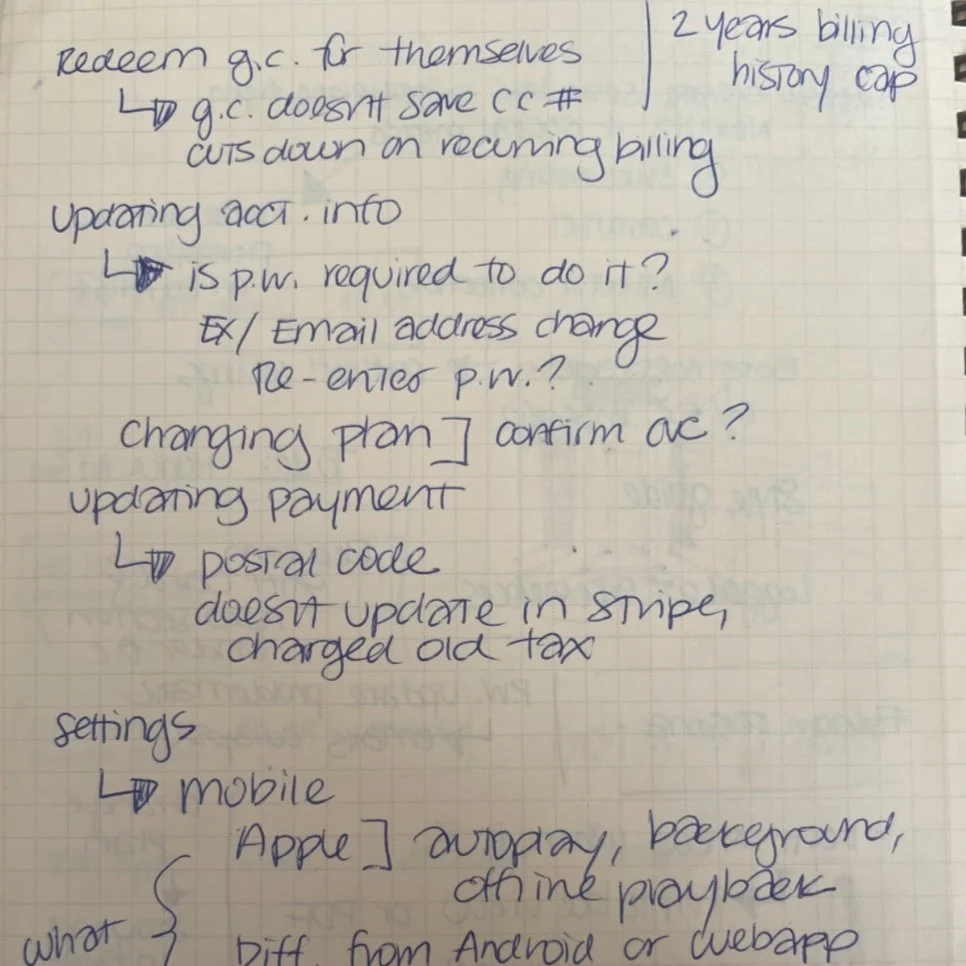 Redeem g.c. for themselves
g.c. doesn't save CC #
cuts down on recurring billing
2 years billing
history cap
Updating acct. info
is p.w. required to do it?
EX/ Email address change
Re-enter p.w.?
Changing plan ] confirm cvc?
Updating payment
postal code
doesn't update in Stripe,
charged old tax
Settings
mobile
Apple ] autoplay, background,
offline playback
what {
Diff. from Android or webapp